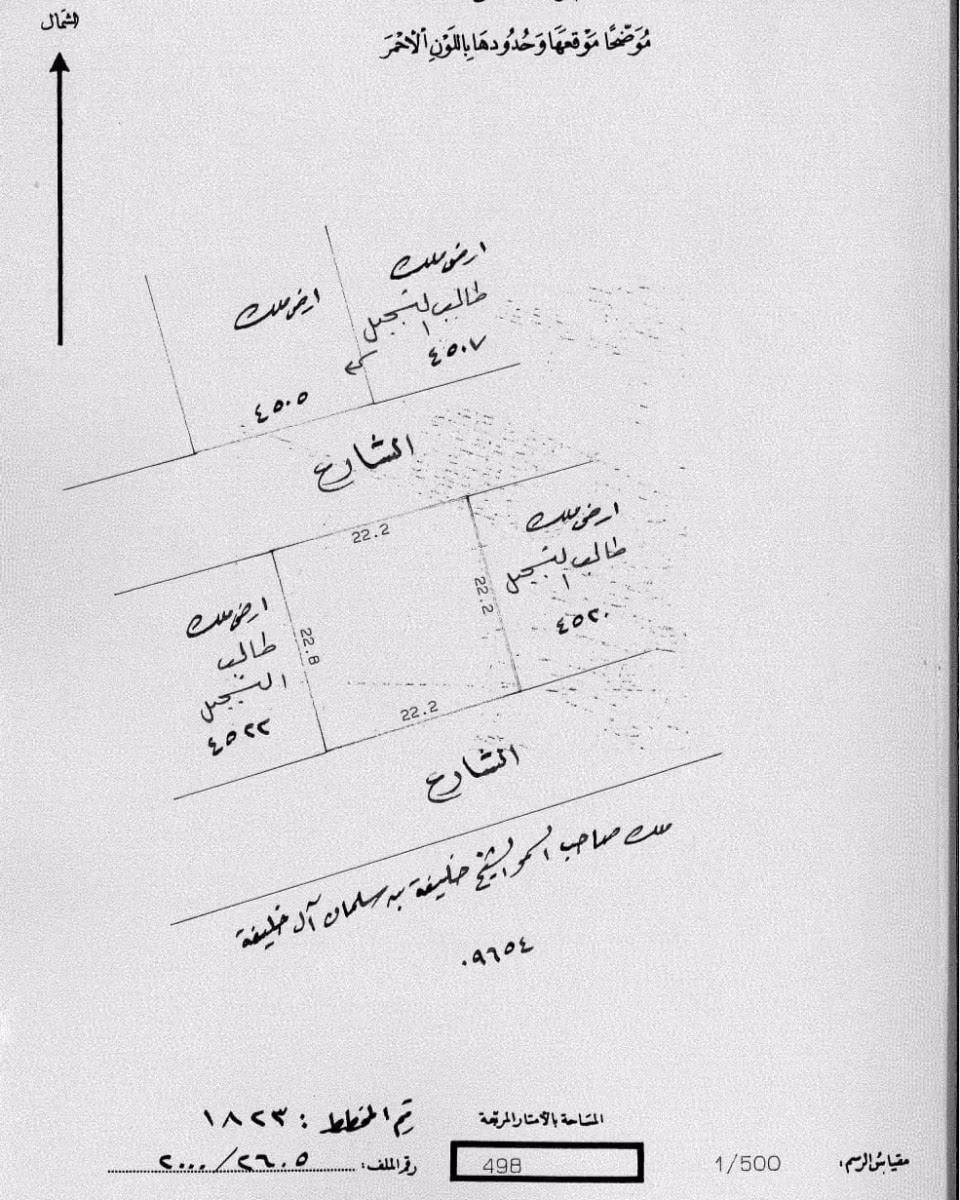 الشمال
مُوَضَّحًا مَوْقعهَا وَحُدُودهَا بِاللَوْنِ الْأَحْمَرَ
ارض ملك
طالب التسجيل
٤٥٠٧
ارض ملك
٤٥٠٥
الشارع
22.2
ارض ملك
طالب التسجيل
٤٥٢٠
22.2
ارض ملك
طالب
التسجيل
٤٥٢٢
22.8
22.2
الشارع
ملك صاحب السمو الشيخ خليفة بن سلمان آل خليفة
٠٩٦٥٤
رقم المخطط : ١٨٢٣
المسَاحة بالأمتار المربّعة
مقياسُ الرسم: 1/500
498
رقم الملف: ٢٠٠٠/٢٦٠٥